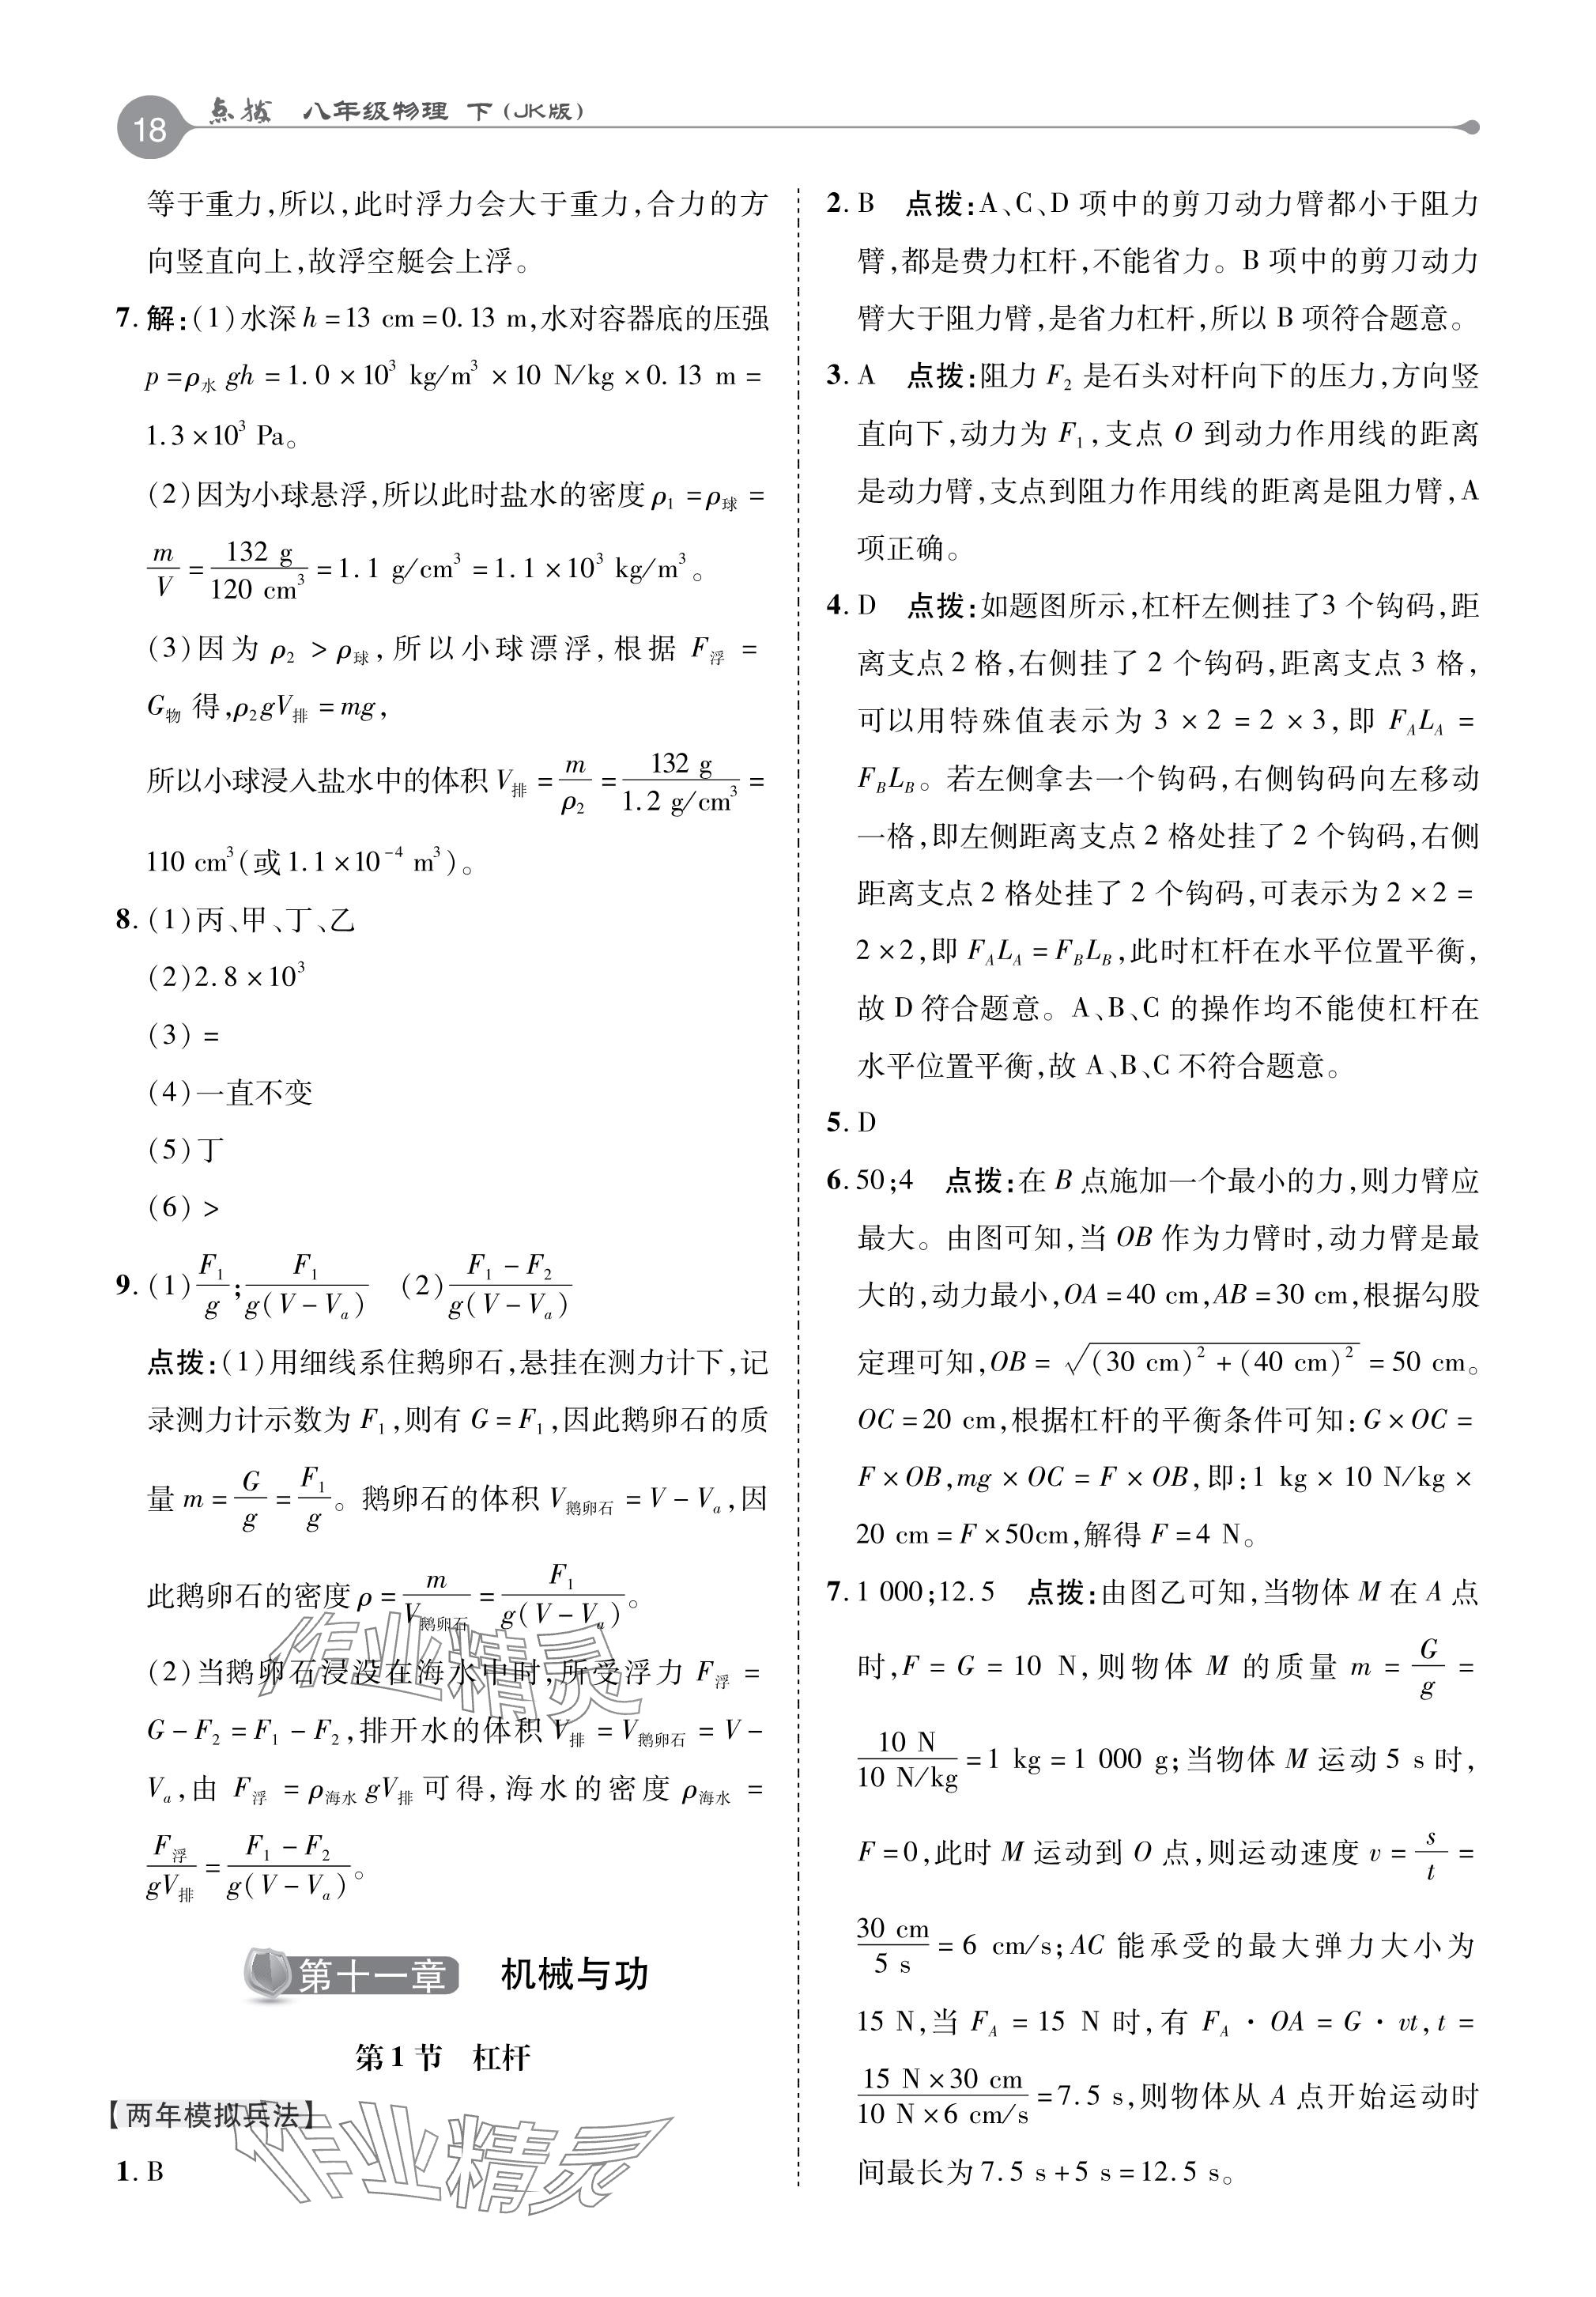 18 点拨 八年级物理 下(JK版)
等于重力,所以,此时浮力会大于重力,合力的方
向竖直向上,故浮空艇会上浮。
7. 解:(1)水深 h=13 cm=0.13 m,水对容器底的压强
p=ρ水 gh=1.0×10³ kg/m³×10 N/kg×0.13 m=
1.3×10³ Pa。
(2)因为小球悬浮,所以此时盐水的密度 ρ₁=ρ球=
m/V=132 g/120 cm³=1.1 g/cm³=1.1×10³ kg/m³。
(3)因为 ρ₂>ρ球,所以小球漂浮,根据 F浮=
G物 得,ρ₂gV排=mg,
所以小球浸入盐水中的体积 V排=m/ρ₂=132 g/1.2 g/cm³=
110 cm³(或 1.1×10⁻⁴ m³)。
8. (1)丙、甲、丁、乙
(2)2.8×10³
(3)=
(4)一直不变
(5)丁
(6)>
9. (1)F₁/g;F₁/g(V-Vₐ) (2)F₁-F₂/g(V-Vₐ)
点拨:(1)用细线系住鹅卵石,悬挂在测力计下,记
录测力计示数为 F₁,则有 G=F₁,因此鹅卵石的质
量 m=G/g=F₁/g。鹅卵石的体积 V鹅卵石=V-Vₐ,因
此鹅卵石的密度 ρ=m/V鹅卵石=F₁/g(V-Vₐ)。
(2)当鹅卵石浸没在海水中时,所受浮力 F浮=
G-F₂=F₁-F₂,排开水的体积 V排=V鹅卵石=V-
Vₐ,由 F浮=ρ海水gV排 可得,海水的密度 ρ海水=
F浮/gV排=F₁-F₂/g(V-Vₐ)。
第十一章 机械与功
第1节 杠杆
【两年模拟兵法】
1. B
2. B 点拨:A、C、D 项中的剪刀动力臂都小于阻力
臂,都是费力杠杆,不能省力。B 项中的剪刀动力
臂大于阻力臂,是省力杠杆,所以 B 项符合题意。
3. A 点拨:阻力 F₂ 是石头对杆向下的压力,方向竖
直向下,动力为 F₁,支点 O 到动力作用线的距离
是动力臂,支点到阻力作用线的距离是阻力臂,A
项正确。
4. D 点拨:如题图所示,杠杆左侧挂了3 个钩码,距
离支点 2 格,右侧挂了 2 个钩码,距离支点 3 格,
可以用特殊值表示为 3×2=2×3,即 F_A L_A=
F_B L_B。若左侧拿去一个钩码,右侧钩码向左移动
一格,即左侧距离支点 2 格处挂了 2 个钩码,右侧
距离支点 2 格处挂了 2 个钩码,可表示为 2×2=
2×2,即 F_A L_A=F_B L_B,此时杠杆在水平位置平衡,
故 D 符合题意。A、B、C 的操作均不能使杠杆在
水平位置平衡,故 A、B、C 不符合题意。
5. D
6. 50;4 点拨:在 B 点施加一个最小的力,则力臂应
最大。由图可知,当 OB 作为力臂时,动力臂是最
大的,动力最小,OA=40 cm,AB=30 cm,根据勾股
定理可知,OB=√(30 cm)²+(40 cm)²=50 cm。
OC=20 cm,根据杠杆的平衡条件可知:G×OC=
F×OB,mg×OC=F×OB,即:1 kg×10 N/kg×
20 cm=F×50cm,解得 F=4 N。
7. 1 000;12.5 点拨:由图乙可知,当物体 M 在 A 点
时,F=G=10 N,则物体 M 的质量 m=G/g=
10 N/10 N/kg=1 kg=1 000 g;当物体 M 运动 5 s 时,
F=0,此时 M 运动到 O 点,则运动速度 v=s/t=
30 cm/5 s=6 cm/s;AC 能承受的最大弹力大小为
15 N,当 F_A=15 N 时,有 F_A·OA=G·vt,t=
15 N×30 cm/10 N×6 cm/s=7.5 s,则物体从 A 点开始运动时
间最长为 7.5 s+5 s=12.5 s。
作业精灵
作业精灵